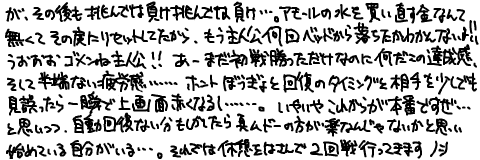 が、その後も挑んでは負け挑んでは負け…。アモールの水を買い直す金なんて
無くてその度にリセットしてたから、もう主人公何回ベッドから落ちたかわかんないよ!!
うおおお ゴメンね主人公!! あーまだ初戦勝っただけなのに何だこの達成感、
そして半端ない疲労感……。ホント ぼうぎょと回復のタイミングと相手を少しでも
見誤ったら一瞬で上画面赤くなるし……。いやいやこれからが本番ですぜ…
と思いつつ、自動回復ない分もしかしたら真ムドーの方が楽なんじゃないかと思い
始めている自分がいる…。それでは休憩をはさんで2回戦行ってきます ノシ